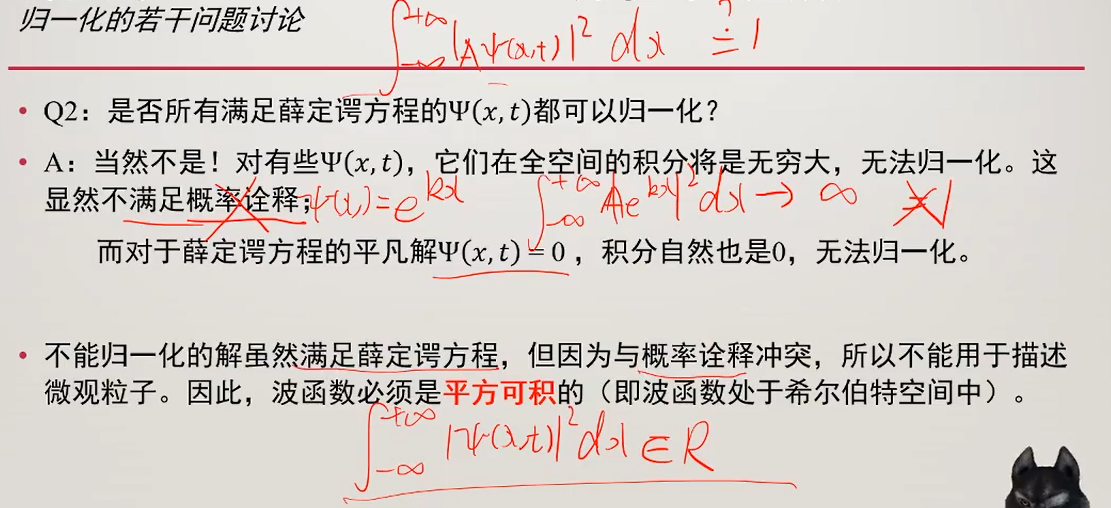 归一化的若干问题讨论
∫_{-∞}^{+∞} |Aψ(x,t)|² dx ≟ 1
• Q2：是否所有满足薛定谔方程的Ψ(x, t)都可以归一化？
• A：当然不是！对有些Ψ(x, t)，它们在全空间的积分将是无穷大，无法归一化。这
显然不满足概率诠释；
ψ(x,) = e^{kx} ∫_{-∞}^{+∞} |Ae^{kx}|² dx → ∞
而对于薛定谔方程的平凡解Ψ(x, t) = 0 ，积分自然也是0，无法归一化。
• 不能归一化的解虽然满足薛定谔方程，但因为与概率诠释冲突，所以不能用于描述
微观粒子。因此，波函数必须是平方可积的（即波函数处于希尔伯特空间中）。
∫_{-∞}^{+∞} |ψ(x,t)|² dx ∈ R